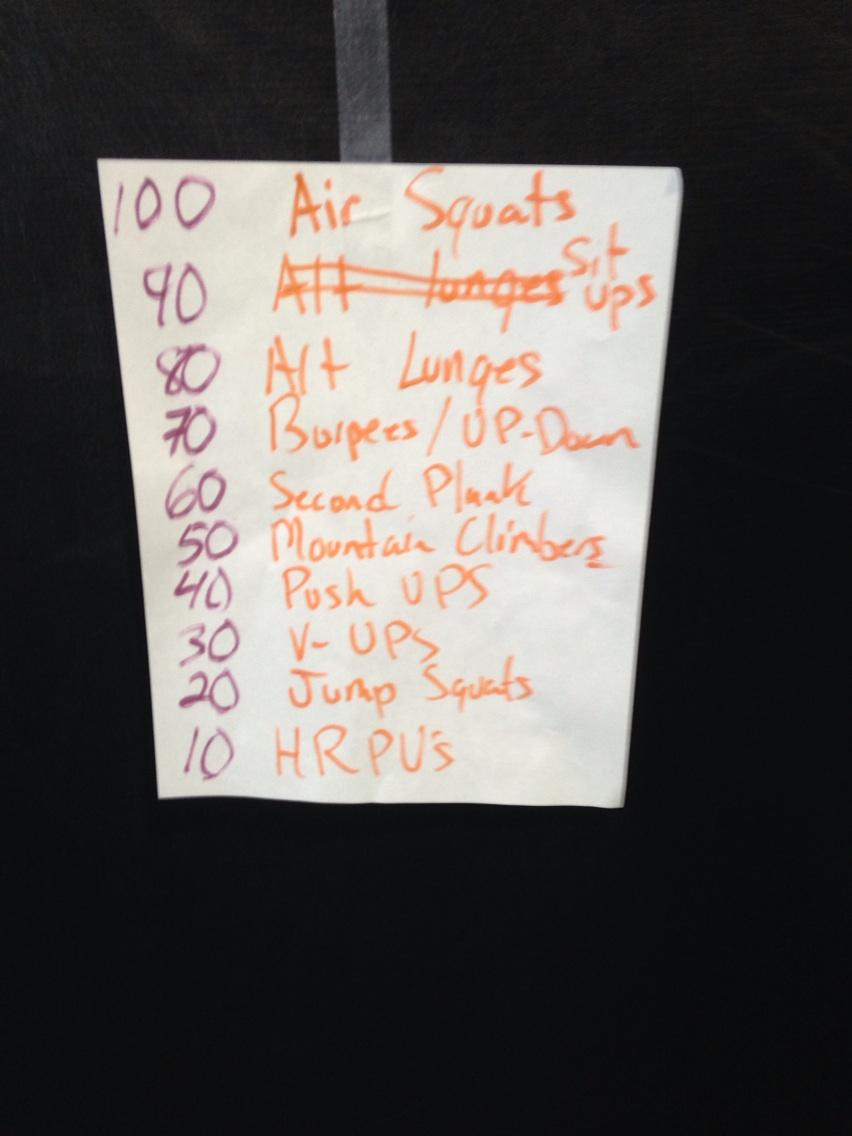 100 Air Squats
90 Alt lunges Sit ups
80 Alt Lunges
70 Burpees/UP-Down
60 Second Plank
50 Mountain Climbers
40 Push UPS
30 V-UPS
20 Jump Squats
10 HRPU's